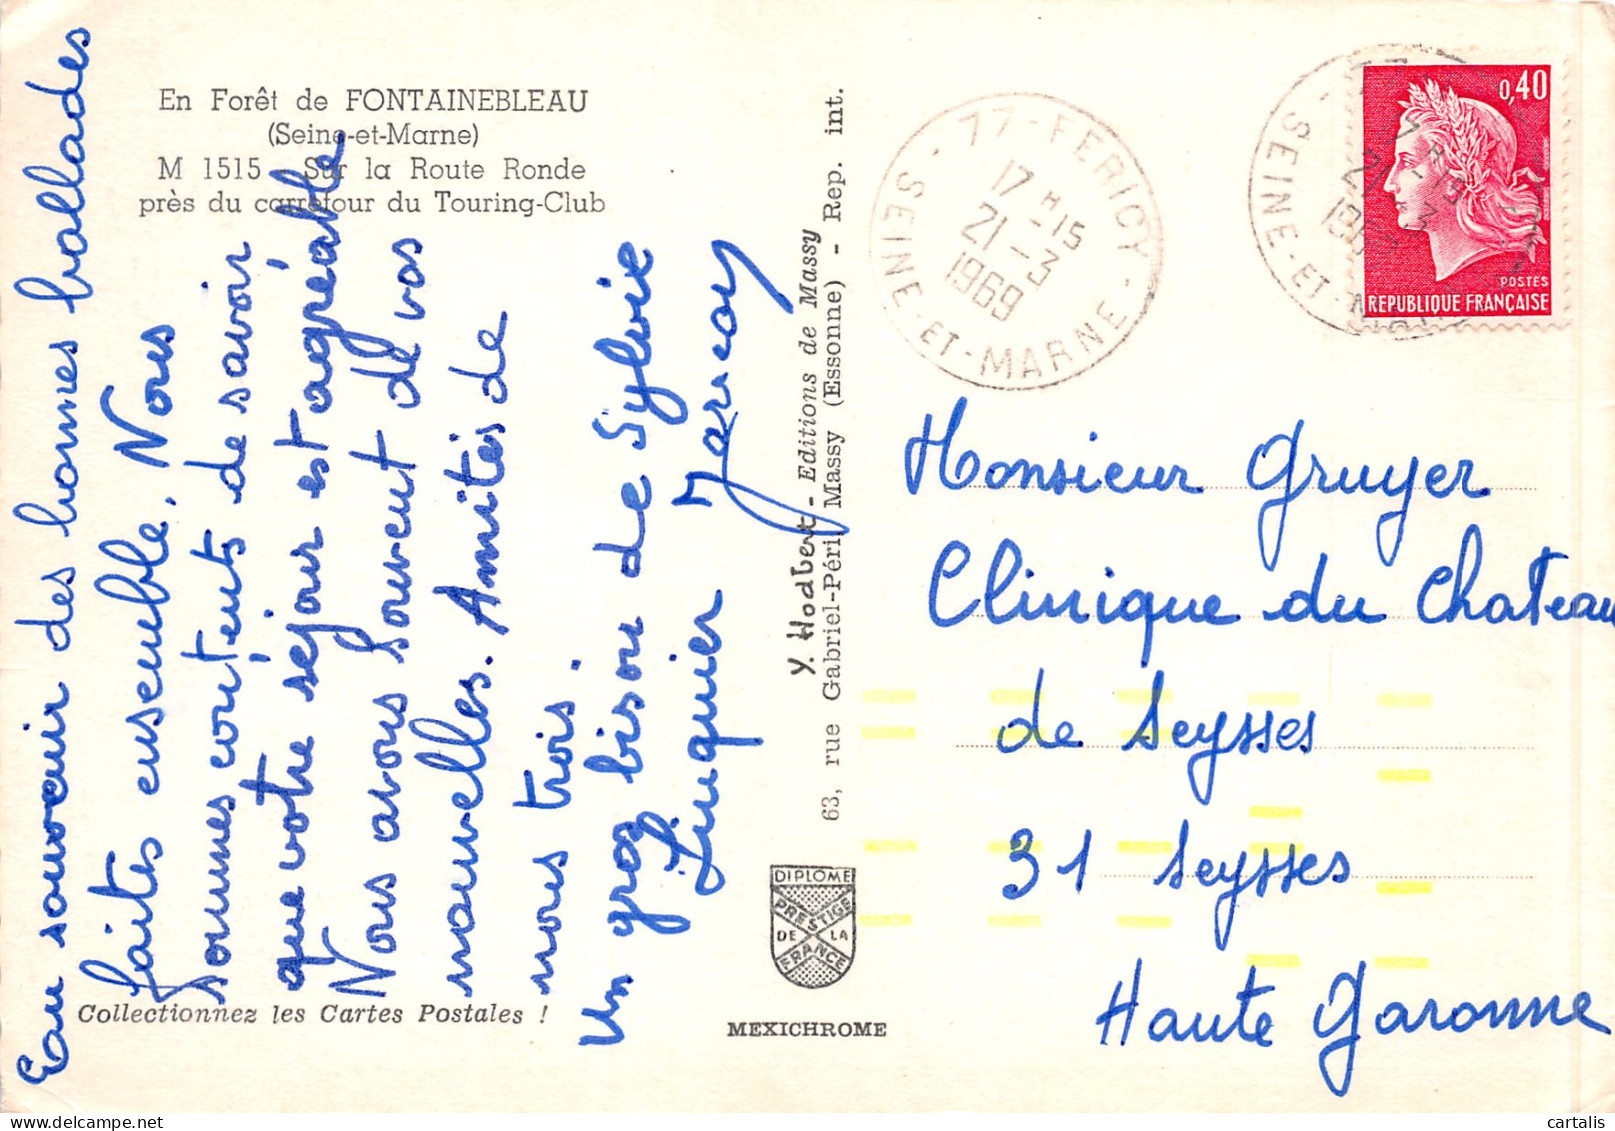 En Forêt de FONTAINEBLEAU
(Seine-et-Marne)
M 1515 - Sur la Route Ronde
près du carrefour du Touring-Club
souvenir des bonnes ballades
faites ensemble. Nous
sommes contents de savoir
que votre séjour est agréable
Nous avons souvent d vos
nouvelles. Amitiés de
nous trois.
Un gros bisou de Sylvie
Collectionnez les Cartes Postales !
Y. Hodbert - Editions de Massy
63, rue Gabriel-Péri Massy (Essonne) - Rep. int.
DIPLOME
PRESTIGE
DE LA
FRANCE
MEXICHROME
77-FERICY
17 H-15
21-3
1969
SEINE-ET-MARNE
0,40
POSTES
REPUBLIQUE FRANÇAISE
SEINE-ET-
Monsieur Gruyer
Clinique du Chateau
de Seysses
31 Seysses
Haute Garonne
cartalis